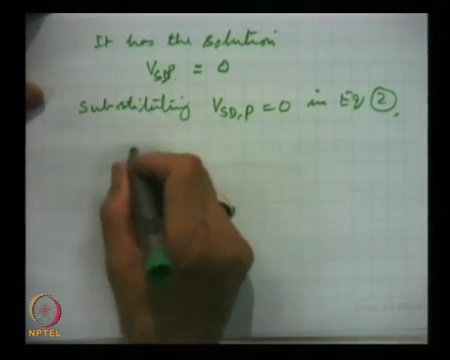 It has the solution
V_SDP = 0
Substituting V_SD,P = 0 in Eq ②,
NPTEL